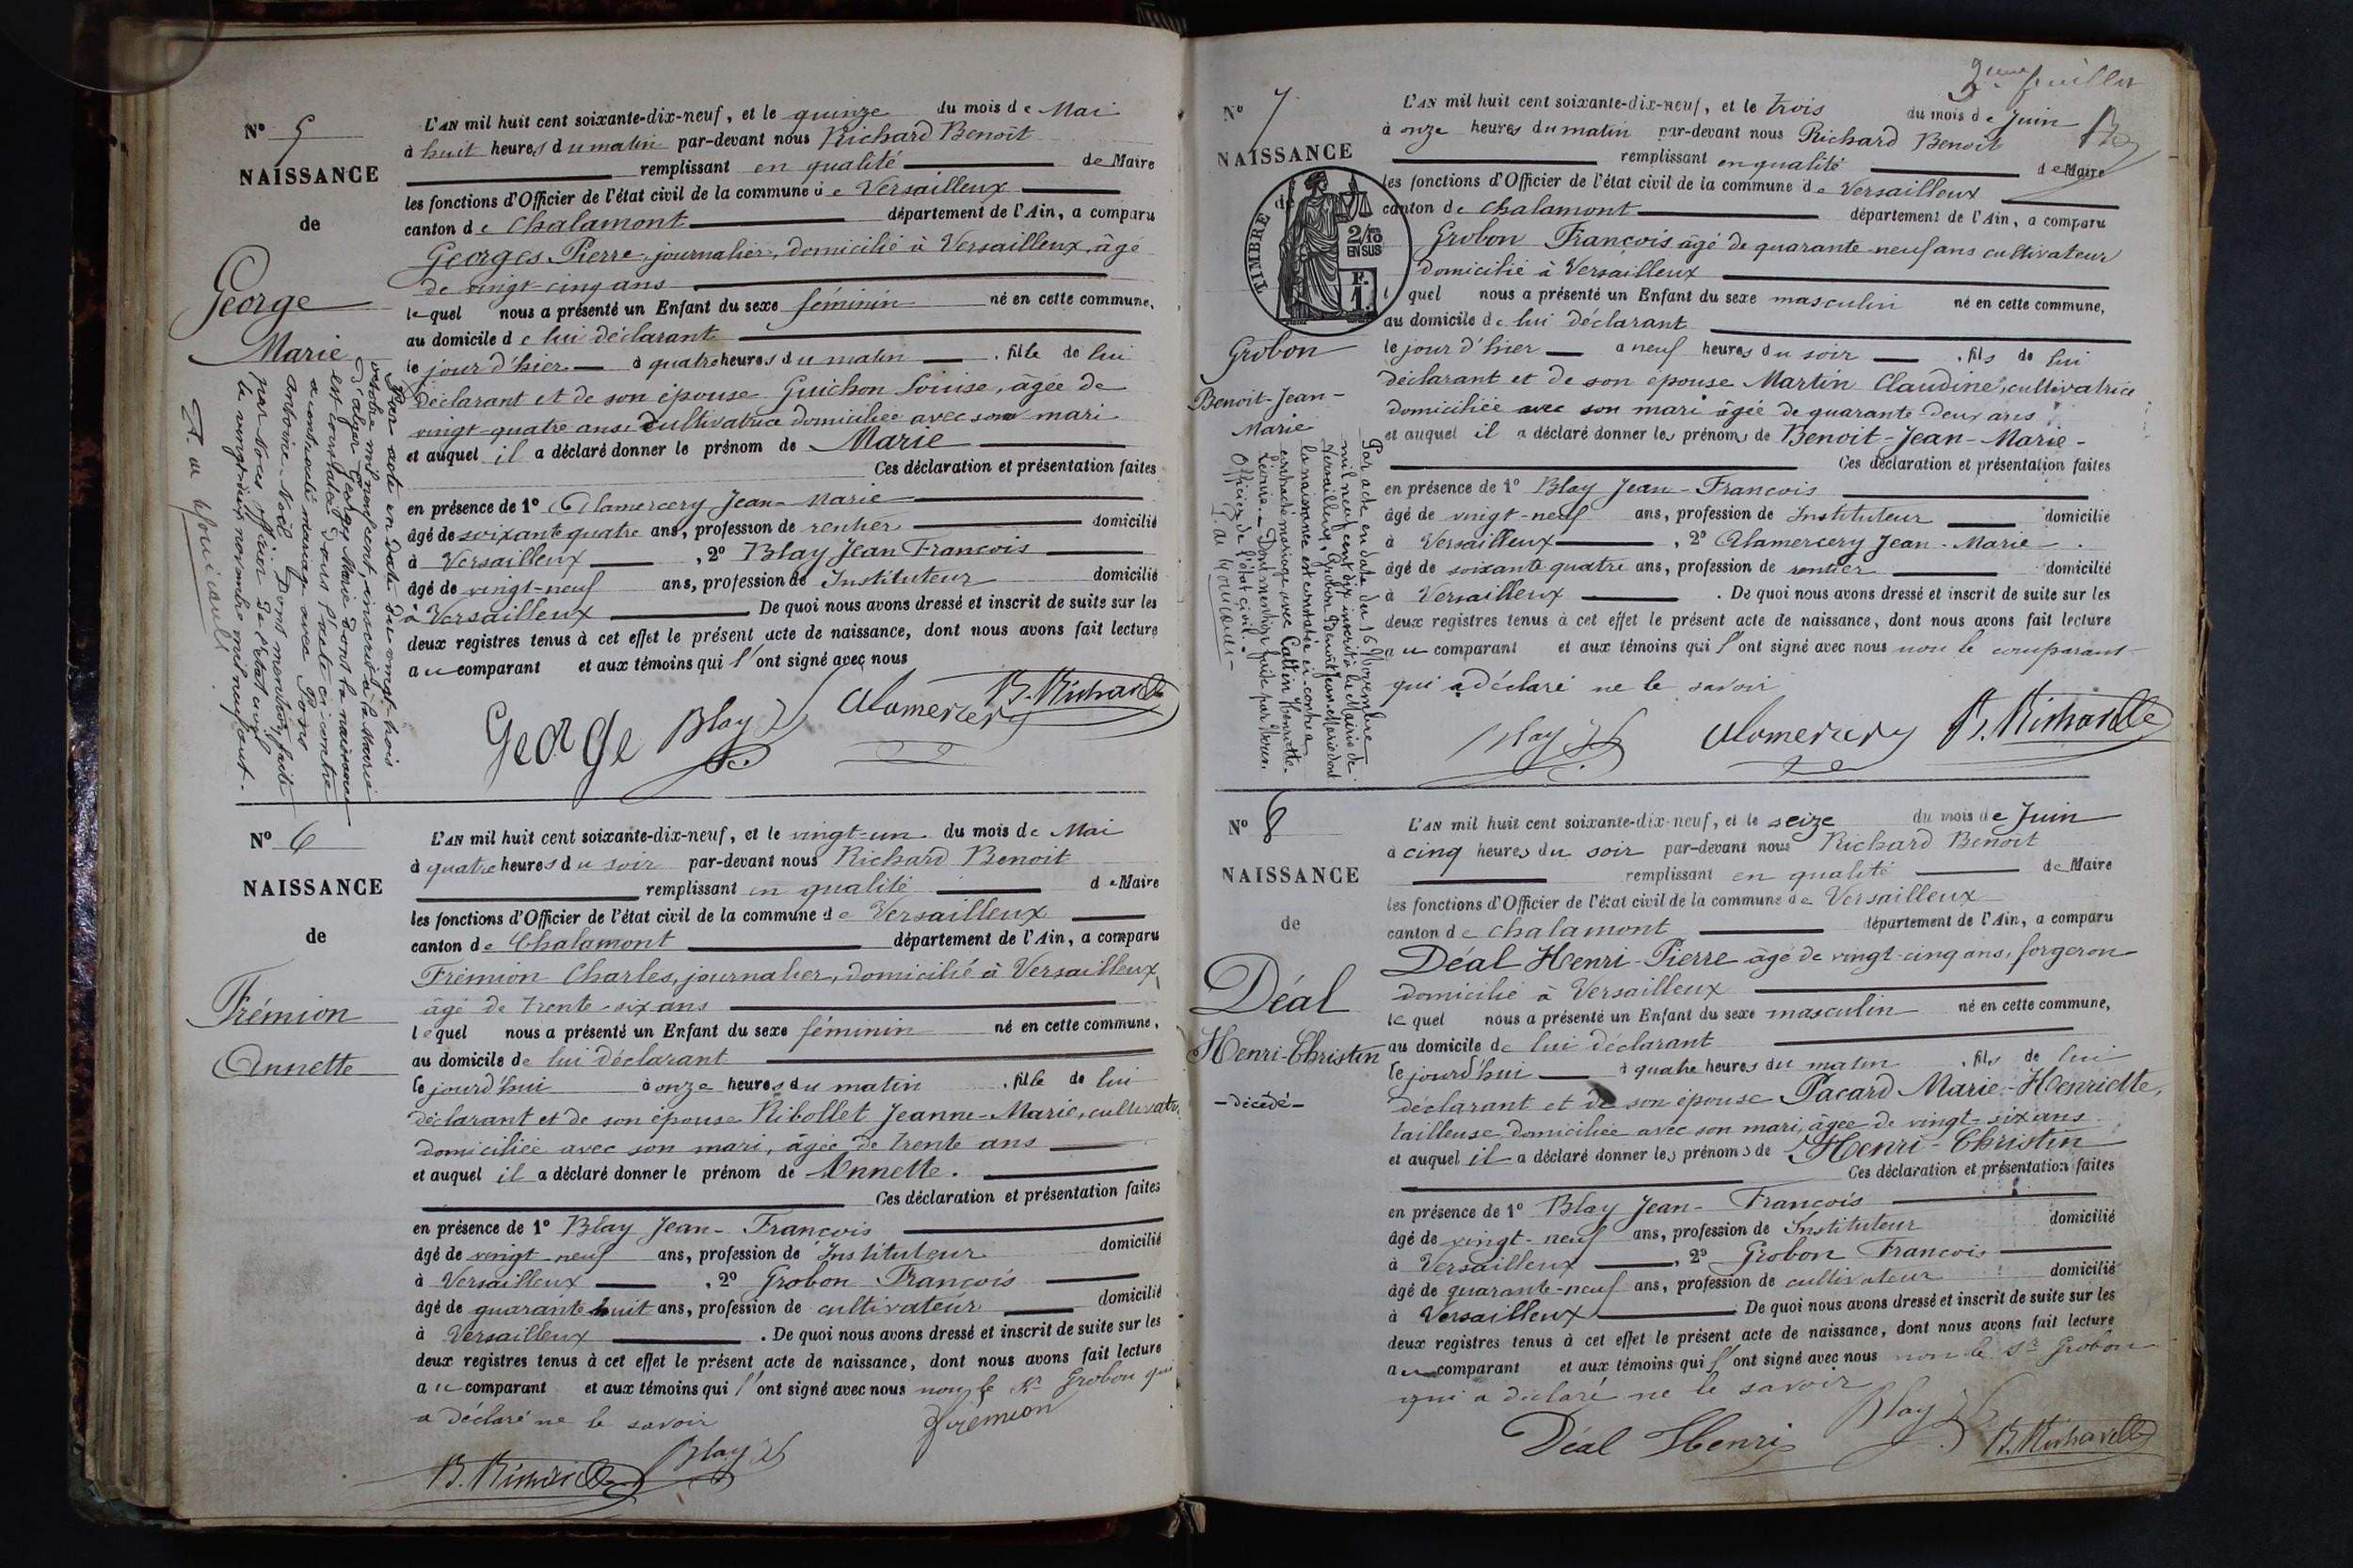 N° 5
NAISSANCE
de
George
Marie
Par acte en date du vingt-trois
octobre mil neuf cent, inscrit à la Mairie
d'alger George Marie dont la naissance
est constatée dans l'acte ci-contre
a contracté mariage avec Pons
Antoine-Noël Dont mention faite
par Nous officier de l'état civil
le vingt-deux novembre mil neuf cent.
L'AN mil huit cent soixante-dix-neuf, et le quinze du mois de Mai
à huit heures du matin par-devant nous Richard Benoît
remplissant en qualité de Maire
les fonctions d'Officier de l'état civil de la commune de Versailleux
canton de Chalamont département de l'Ain, a comparu
Georges Pierre, journalier, domicilié à Versailleux, âgé
de vingt-cinq ans
lequel nous a présenté un Enfant du sexe féminin né en cette commune,
au domicile de lui déclarant
le jour d'hier à quatre heures du matin, fille de lui
déclarant et de son épouse Guichon Louise, âgée de
vingt-quatre ans, cultivatrice domiciliée avec son mari
et auquel il a déclaré donner le prénom de Marie
Ces déclaration et présentation faites
en présence de 1° Alamercery Jean-Marie
âgé de soixante quatre ans, profession de rentier domicilié
à Versailleux, 2° Blay Jean François
âgé de vingt-neuf ans, profession de Instituteur domicilié
à Versailleux De quoi nous avons dressé et inscrit de suite sur les
deux registres tenus à cet effet le présent acte de naissance, dont nous avons fait lecture
au comparant et aux témoins qui l'ont signé avec nous
George Blay Alamercery B. Richard
N° 6
NAISSANCE
de
Frémion
Annette
L'AN mil huit cent soixante-dix-neuf, et le vingt-un du mois de Mai
à quatre heures du soir par-devant nous Richard Benoit
remplissant en qualité de Maire
les fonctions d'Officier de l'état civil de la commune de Versailleux
canton de Chalamont département de l'Ain, a comparu
Frémion Charles, journalier, domicilié à Versailleux,
âgé de trente-six ans
lequel nous a présenté un Enfant du sexe féminin né en cette commune,
au domicile de lui déclarant
le jourd'hui à onze heures du matin, fille de lui
déclarant et de son épouse Ribollet Jeanne-Marie, cultivatr
domiciliée avec son mari, âgée de trente ans
et auquel il a déclaré donner le prénom de Annette.
Ces déclaration et présentation faites
en présence de 1° Blay Jean-François
âgé de vingt neuf ans, profession de Instituteur domicilié
à Versailleux, 2° Grobon François
âgé de quarante huit ans, profession de cultivateur domicilié
à Versailleux. De quoi nous avons dressé et inscrit de suite sur les
deux registres tenus à cet effet le présent acte de naissance, dont nous avons fait lecture
au comparant et aux témoins qui l'ont signé avec nous non le Sr Grobon qui
a déclaré ne le savoir
frémion
B. Richard Blay
2eme feuillet
N° 7
NAISSANCE
de
TIMBRE
2/10
EN SUS
F.
1.
Grobon
Benoit-Jean-
Marie
Par acte en date du 16 Novembre
mil neuf cent dix inscrit à la Mairie de
Versailleux, Grobon Benoit Jean-Marie dont
la naissance est constatée ci-contre a
contracté mariage avec Cattin Henriette
Officier de l'état civil.
L'AN mil huit cent soixante-dix-neuf, et le trois du mois de Juin
à onze heures du matin par-devant nous Richard Benoit
remplissant en qualité de Maire
les fonctions d'Officier de l'état civil de la commune de Versailleux
canton de Chalamont département de l'Ain, a comparu
Grobon François âgé de quarante-neuf ans cultivateur
domicilié à Versailleux
lequel nous a présenté un Enfant du sexe masculin né en cette commune,
au domicile de lui déclarant
le jour d'hier à neuf heures du soir, fils de lui
déclarant et de son épouse Martin Claudine, cultivatrice
domiciliée avec son mari âgée de quarante-deux ans
et auquel il a déclaré donner les prénoms de Benoit-Jean-Marie-
Ces déclaration et présentation faites
en présence de 1° Blay Jean-François
âgé de vingt-neuf ans, profession de Instituteur domicilié
à Versailleux, 2° Alamercery Jean-Marie
âgé de soixante quatre ans, profession de rentier domicilié
à Versailleux. De quoi nous avons dressé et inscrit de suite sur les
deux registres tenus à cet effet le présent acte de naissance, dont nous avons fait lecture
au comparant et aux témoins qui l'ont signé avec nous non le comparant
qui a déclaré ne le savoir
Blay Alamercery B. Richard
N° 8
NAISSANCE
de
Déal
Henri-Christin
-décédé-
L'AN mil huit cent soixante-dix-neuf, et le seize du mois de Juin
à cinq heures du soir par-devant nous Richard Benoit
remplissant en qualité de Maire
les fonctions d'Officier de l'état civil de la commune de Versailleux
canton de Chalamont département de l'Ain, a comparu
Déal Henri-Pierre âgé de vingt-cinq ans, forgeron
domicilié à Versailleux
lequel nous a présenté un Enfant du sexe masculin né en cette commune,
au domicile de lui déclarant
le jourd'hui à quatre heures du matin, fils de lui
déclarant et de son épouse Pacard Marie-Henriette,
tailleuse domiciliée avec son mari, âgée de vingt-six ans
et auquel il a déclaré donner les prénoms de Henri-Christin
Ces déclaration et présentation faites
en présence de 1° Blay Jean-François
âgé de vingt-neuf ans, profession de Instituteur domicilié
à Versailleux, 2° Grobon François
âgé de quarante-neuf ans, profession de cultivateur domicilié
à Versailleux. De quoi nous avons dressé et inscrit de suite sur les
deux registres tenus à cet effet le présent acte de naissance, dont nous avons fait lecture
au comparant et aux témoins qui l'ont signé avec nous non le Sr Grobon
qui a déclaré ne le savoir
Déal Henri Blay B. Richard